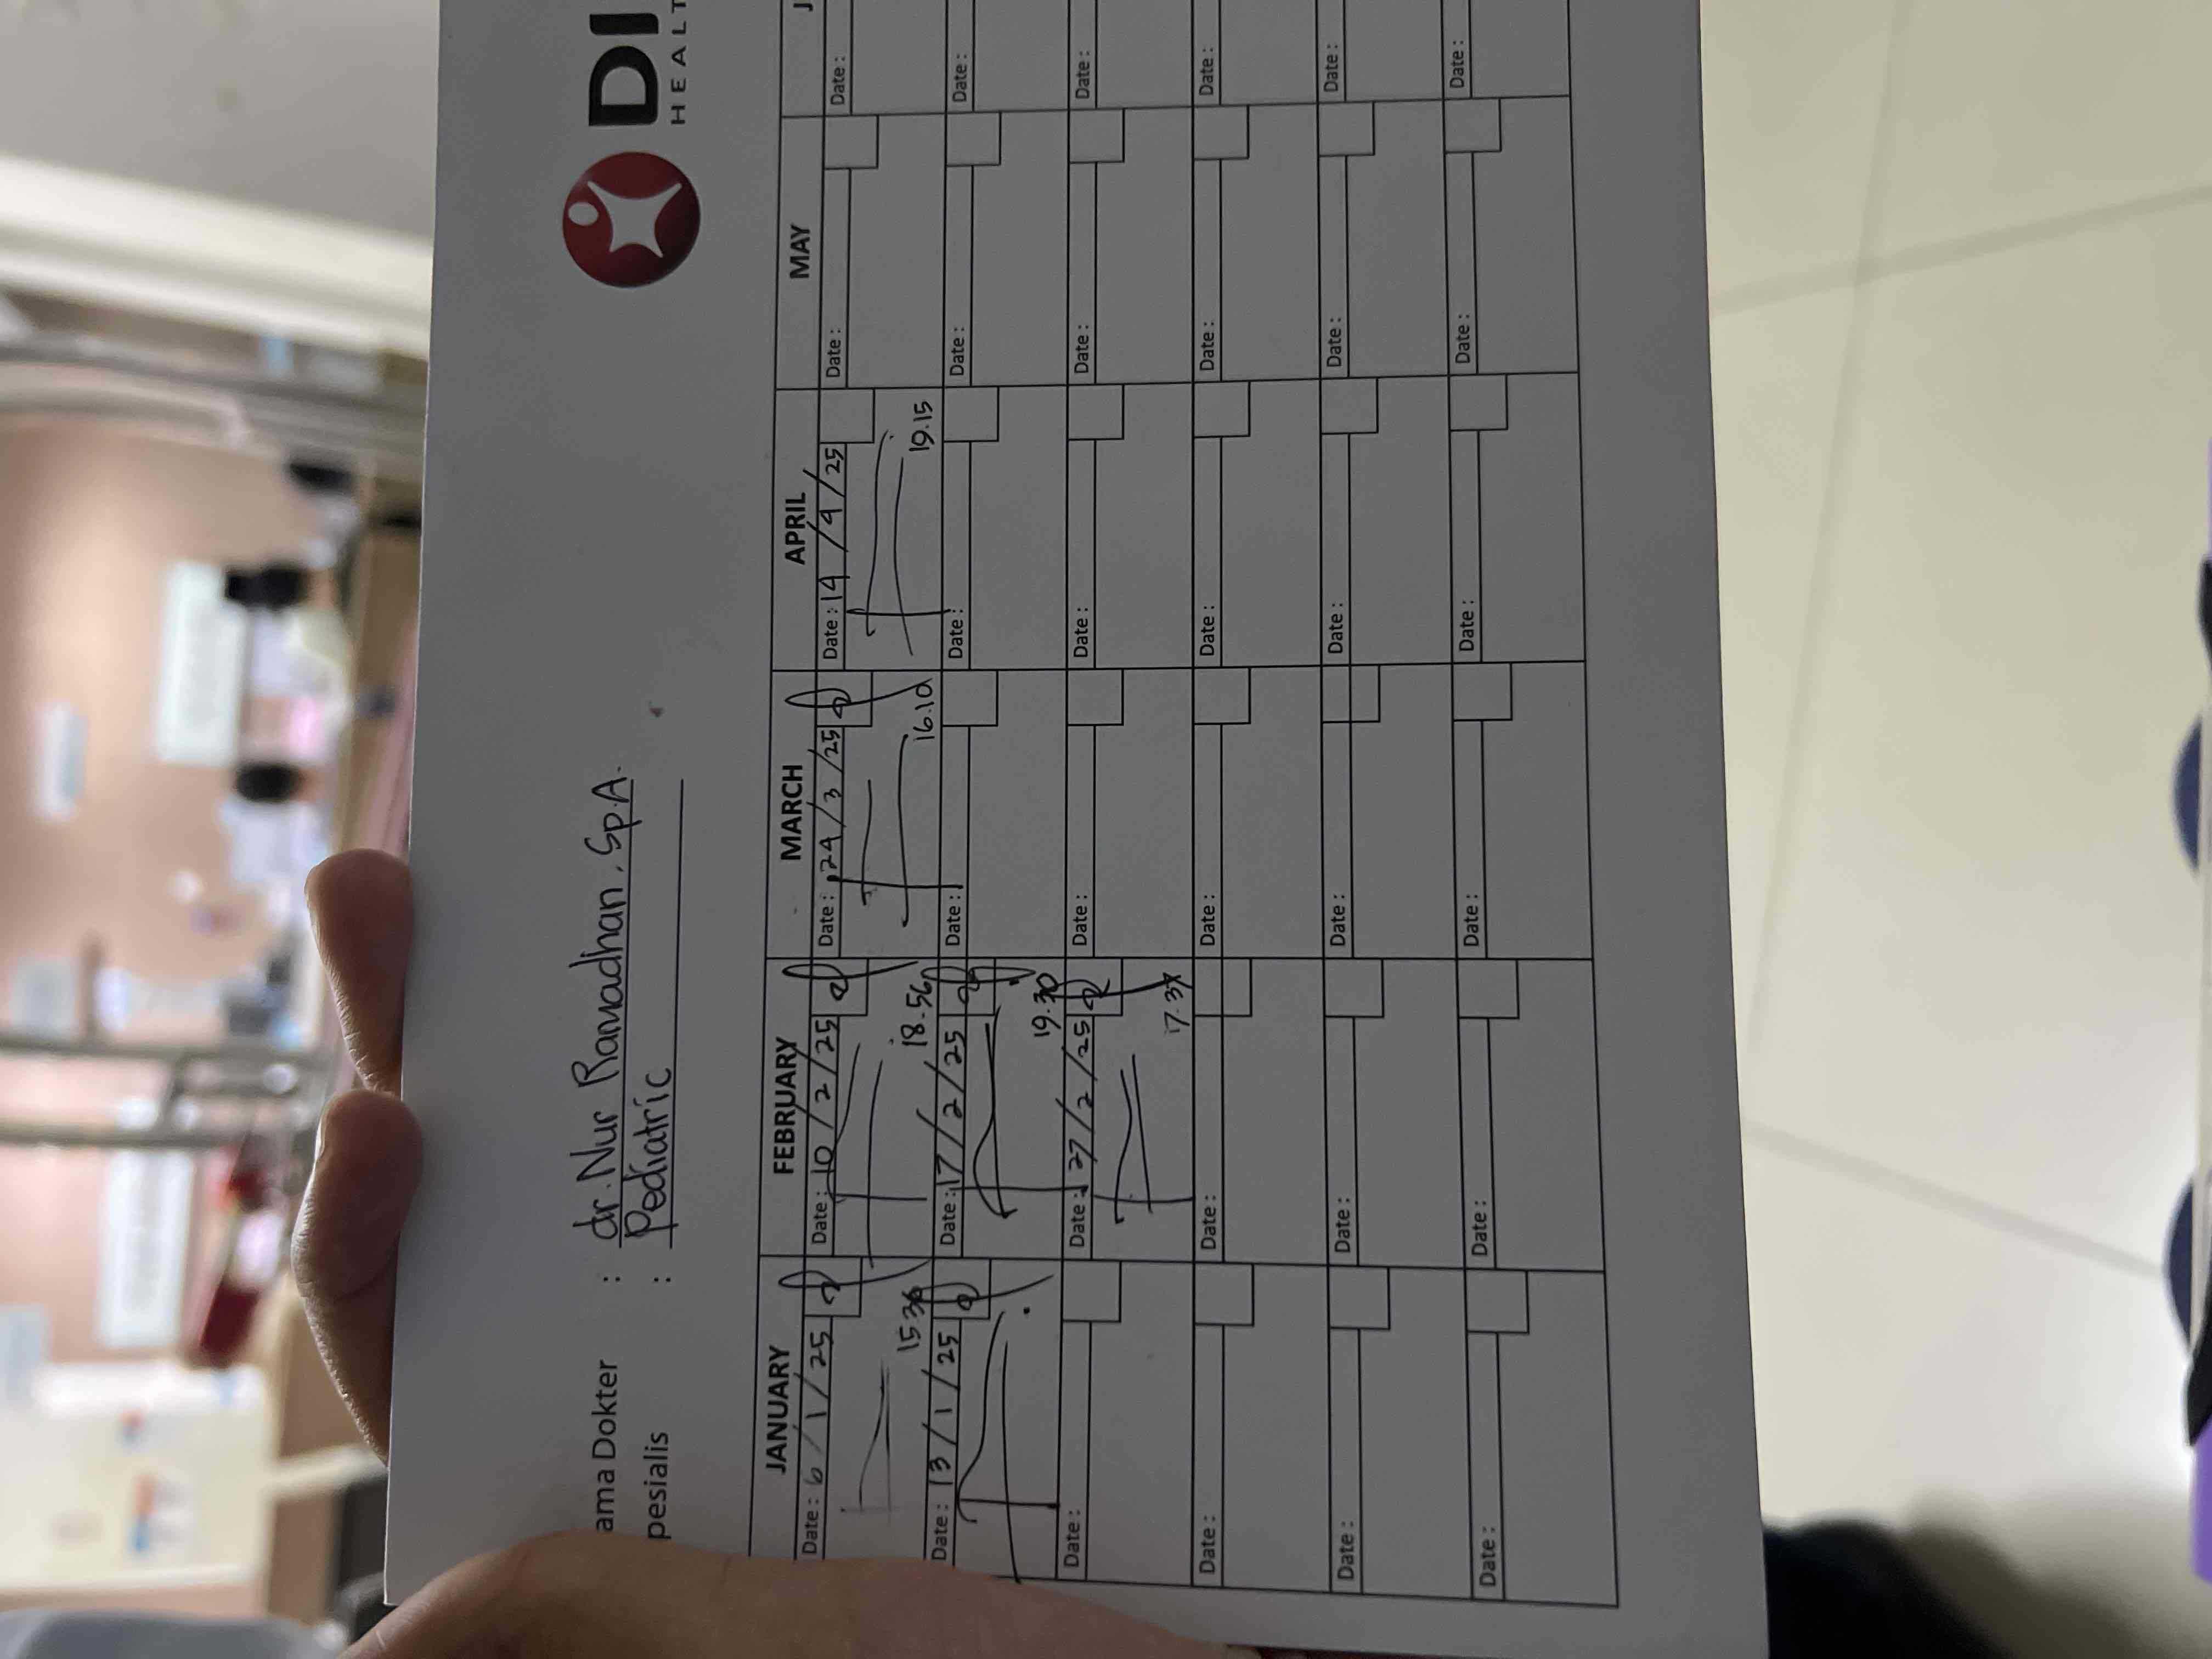 DI
HEALT
ama Dokter : dr. Nur Ramadhan, Sp.A.
pesialis : Pediatric
JANUARY FEBRUARY MARCH APRIL MAY J
Date : 6 / 1 / 25 Date : 10 / 2 / 25 Date : 24 / 3 / 25 Date : 14 / 4 / 25 Date : Date :
15.36 18.56 16.10 19.15
Date : 13 / 1 / 25 Date : 17 / 2 / 25 Date : Date : Date : Date :
19.30
Date : Date : 27 / 2 / 25 Date : Date : Date : Date :
17.37
Date : Date : Date : Date : Date : Date :
Date : Date : Date : Date : Date : Date :
Date : Date : Date : Date : Date : Date :